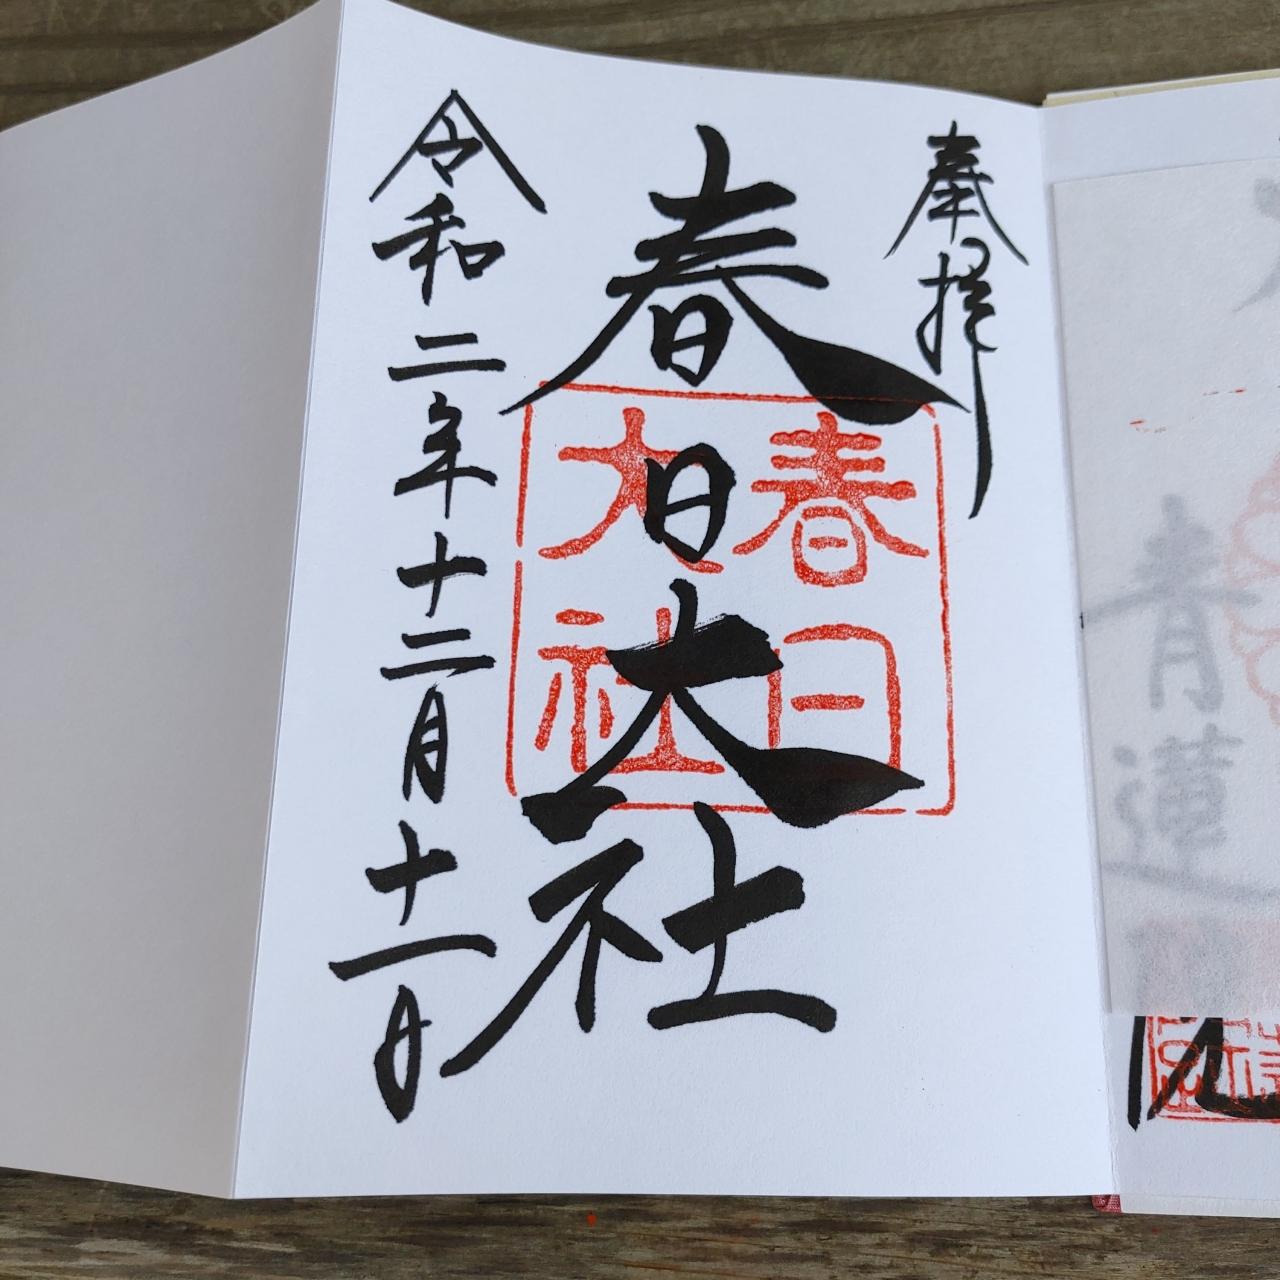 奉拝
春日大社
春日
大社
令和二年十二月十一日
青蓮